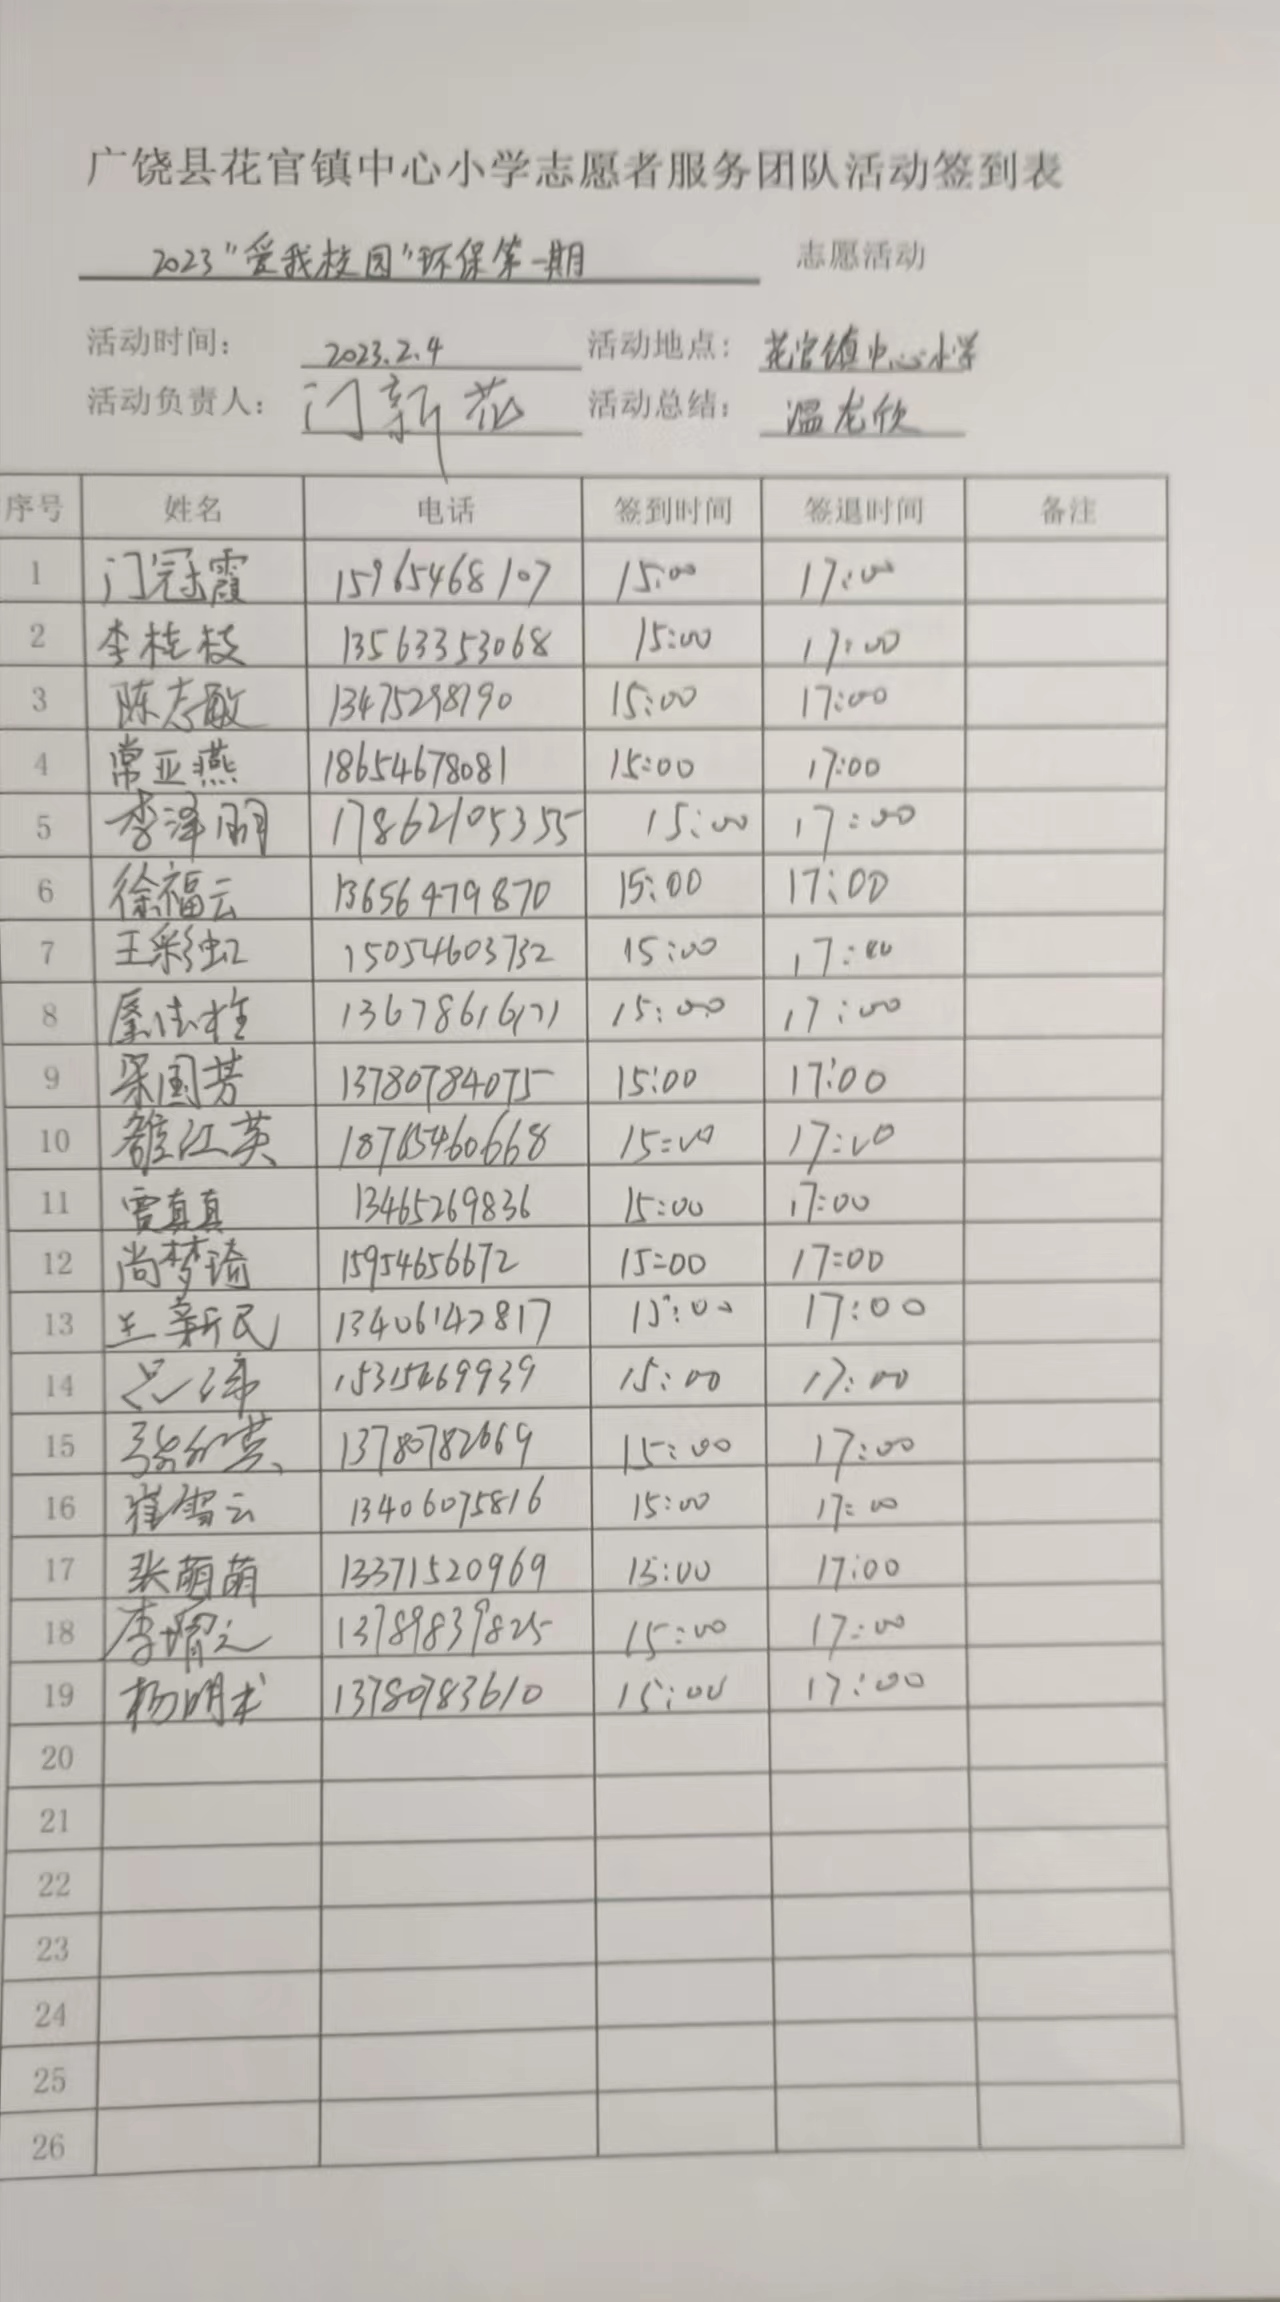 广饶县花官镇中心小学志愿者服务团队活动签到表
2023“爱我校园”环保第一期 志愿活动
活动时间： 2023.2.4 活动地点： 花官镇中心小学
活动负责人： 门新花 活动总结： 温龙欣
序号 姓名 电话 签到时间 签退时间 备注
1 门冠霞 15965468107 15:00 17:00
2 李桂枝 13563353068 15:00 17:00
3 陈志敏 13475298790 15:00 17:00
4 常亚燕 18654678081 15:00 17:00
5 李泽朋 17862105355 15:00 17:00
6 徐福云 13656479870 15:00 17:00
7 王彩虹 15054603732 15:00 17:00
8 13678616171 15:00 17:00
9 梁国芳 13780784075 15:00 17:00
10 江英 18765460668 15:00 17:00
11 贾真真 13465269836 15:00 17:00
12 尚梦琦 15954656672 15:00 17:00
13 王新民 13406142817 15:00 17:00
14 15315469939 15:00 17:00
15 张红英 13780782669 15:00 17:00
16 崔雪云 13406075816 15:00 17:00
17 张萌萌 13371520969 15:00 17:00
18 李 13789839825 15:00 17:00
19 杨明术 13780783610 15:00 17:00
20
21
22
23
24
25
26